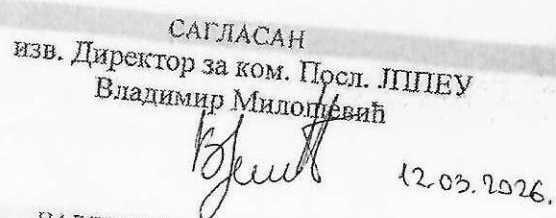 САГЛАСАН
изв. Директор за ком. Посл. ЈППЕУ
Владимир Милошевић
12.03.2026.